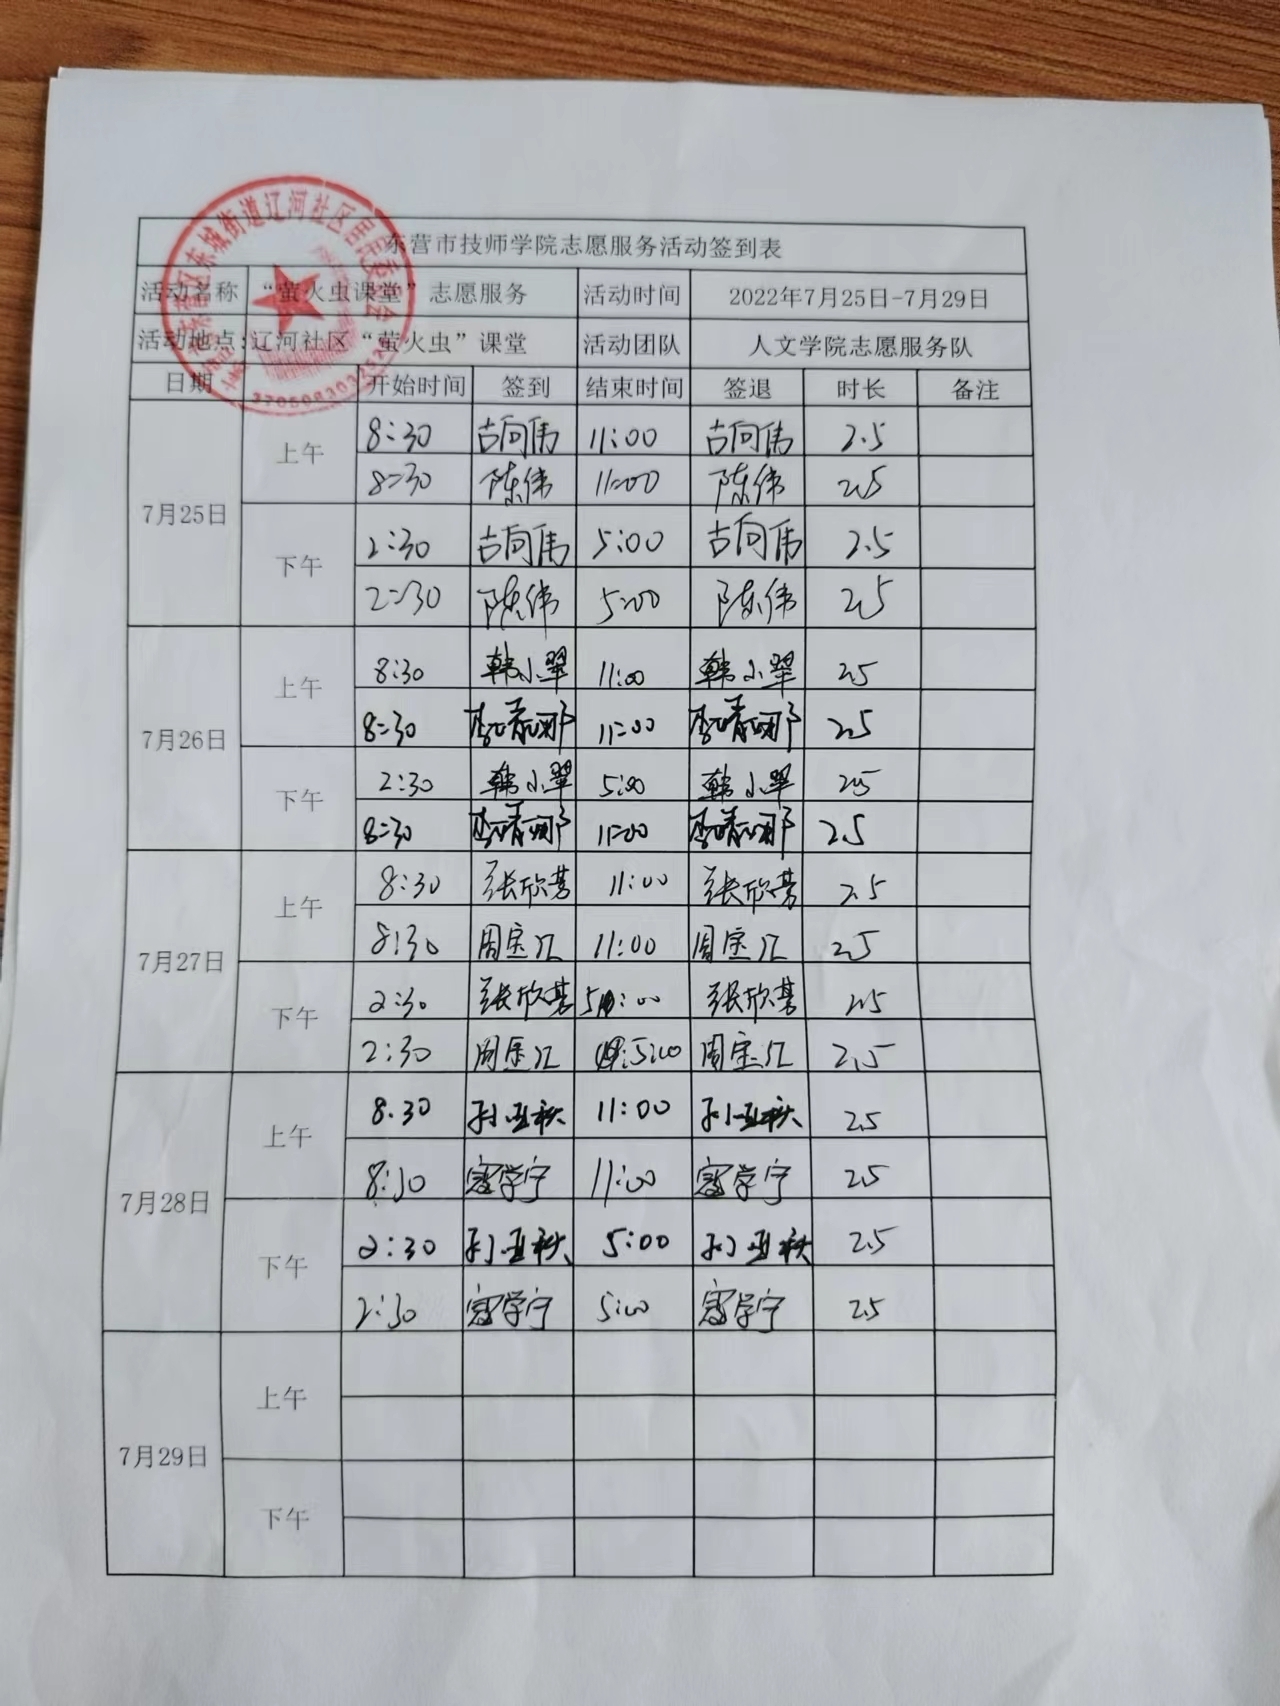 东营市技师学院志愿服务活动签到表
活动名称 “萤火虫课堂”志愿服务 活动时间 2022年7月25日-7月29日
活动地点:辽河社区“萤火虫”课堂 活动团队 人文学院志愿服务队
日期 开始时间 签到 结束时间 签退 时长 备注
7月25日 上午 8:30 古向伟 11:00 古向伟 2.5
8:30 陈伟 11:00 陈伟 2.5
下午 2:30 古向伟 5:00 古向伟 2.5
2:30 陈伟 5:00 陈伟 2.5
7月26日 上午 8:30 韩小翠 11:00 韩小翠 2.5
8:30 李靖娜 11:00 李靖娜 2.5
下午 2:30 韩小翠 5:00 韩小翠 2.5
8:30 李靖娜 11:00 李靖娜 2.5
7月27日 上午 8:30 张欣 11:00 张欣 2.5
8:30 周宝汇 11:00 周宝汇 2.5
下午 2:30 张欣 5:00 张欣 2.5
2:30 周宝汇 5:00 周宝汇 2.5
7月28日 上午 8.30 孙亚秋 11:00 孙亚秋 2.5
8:30 学宁 11:00 学宁 2.5
下午 2:30 孙亚秋 5:00 孙亚秋 2.5
2:30 学宁 5:00 学宁 2.5
7月29日 上午
下午
东城街道辽河社区居民委员会